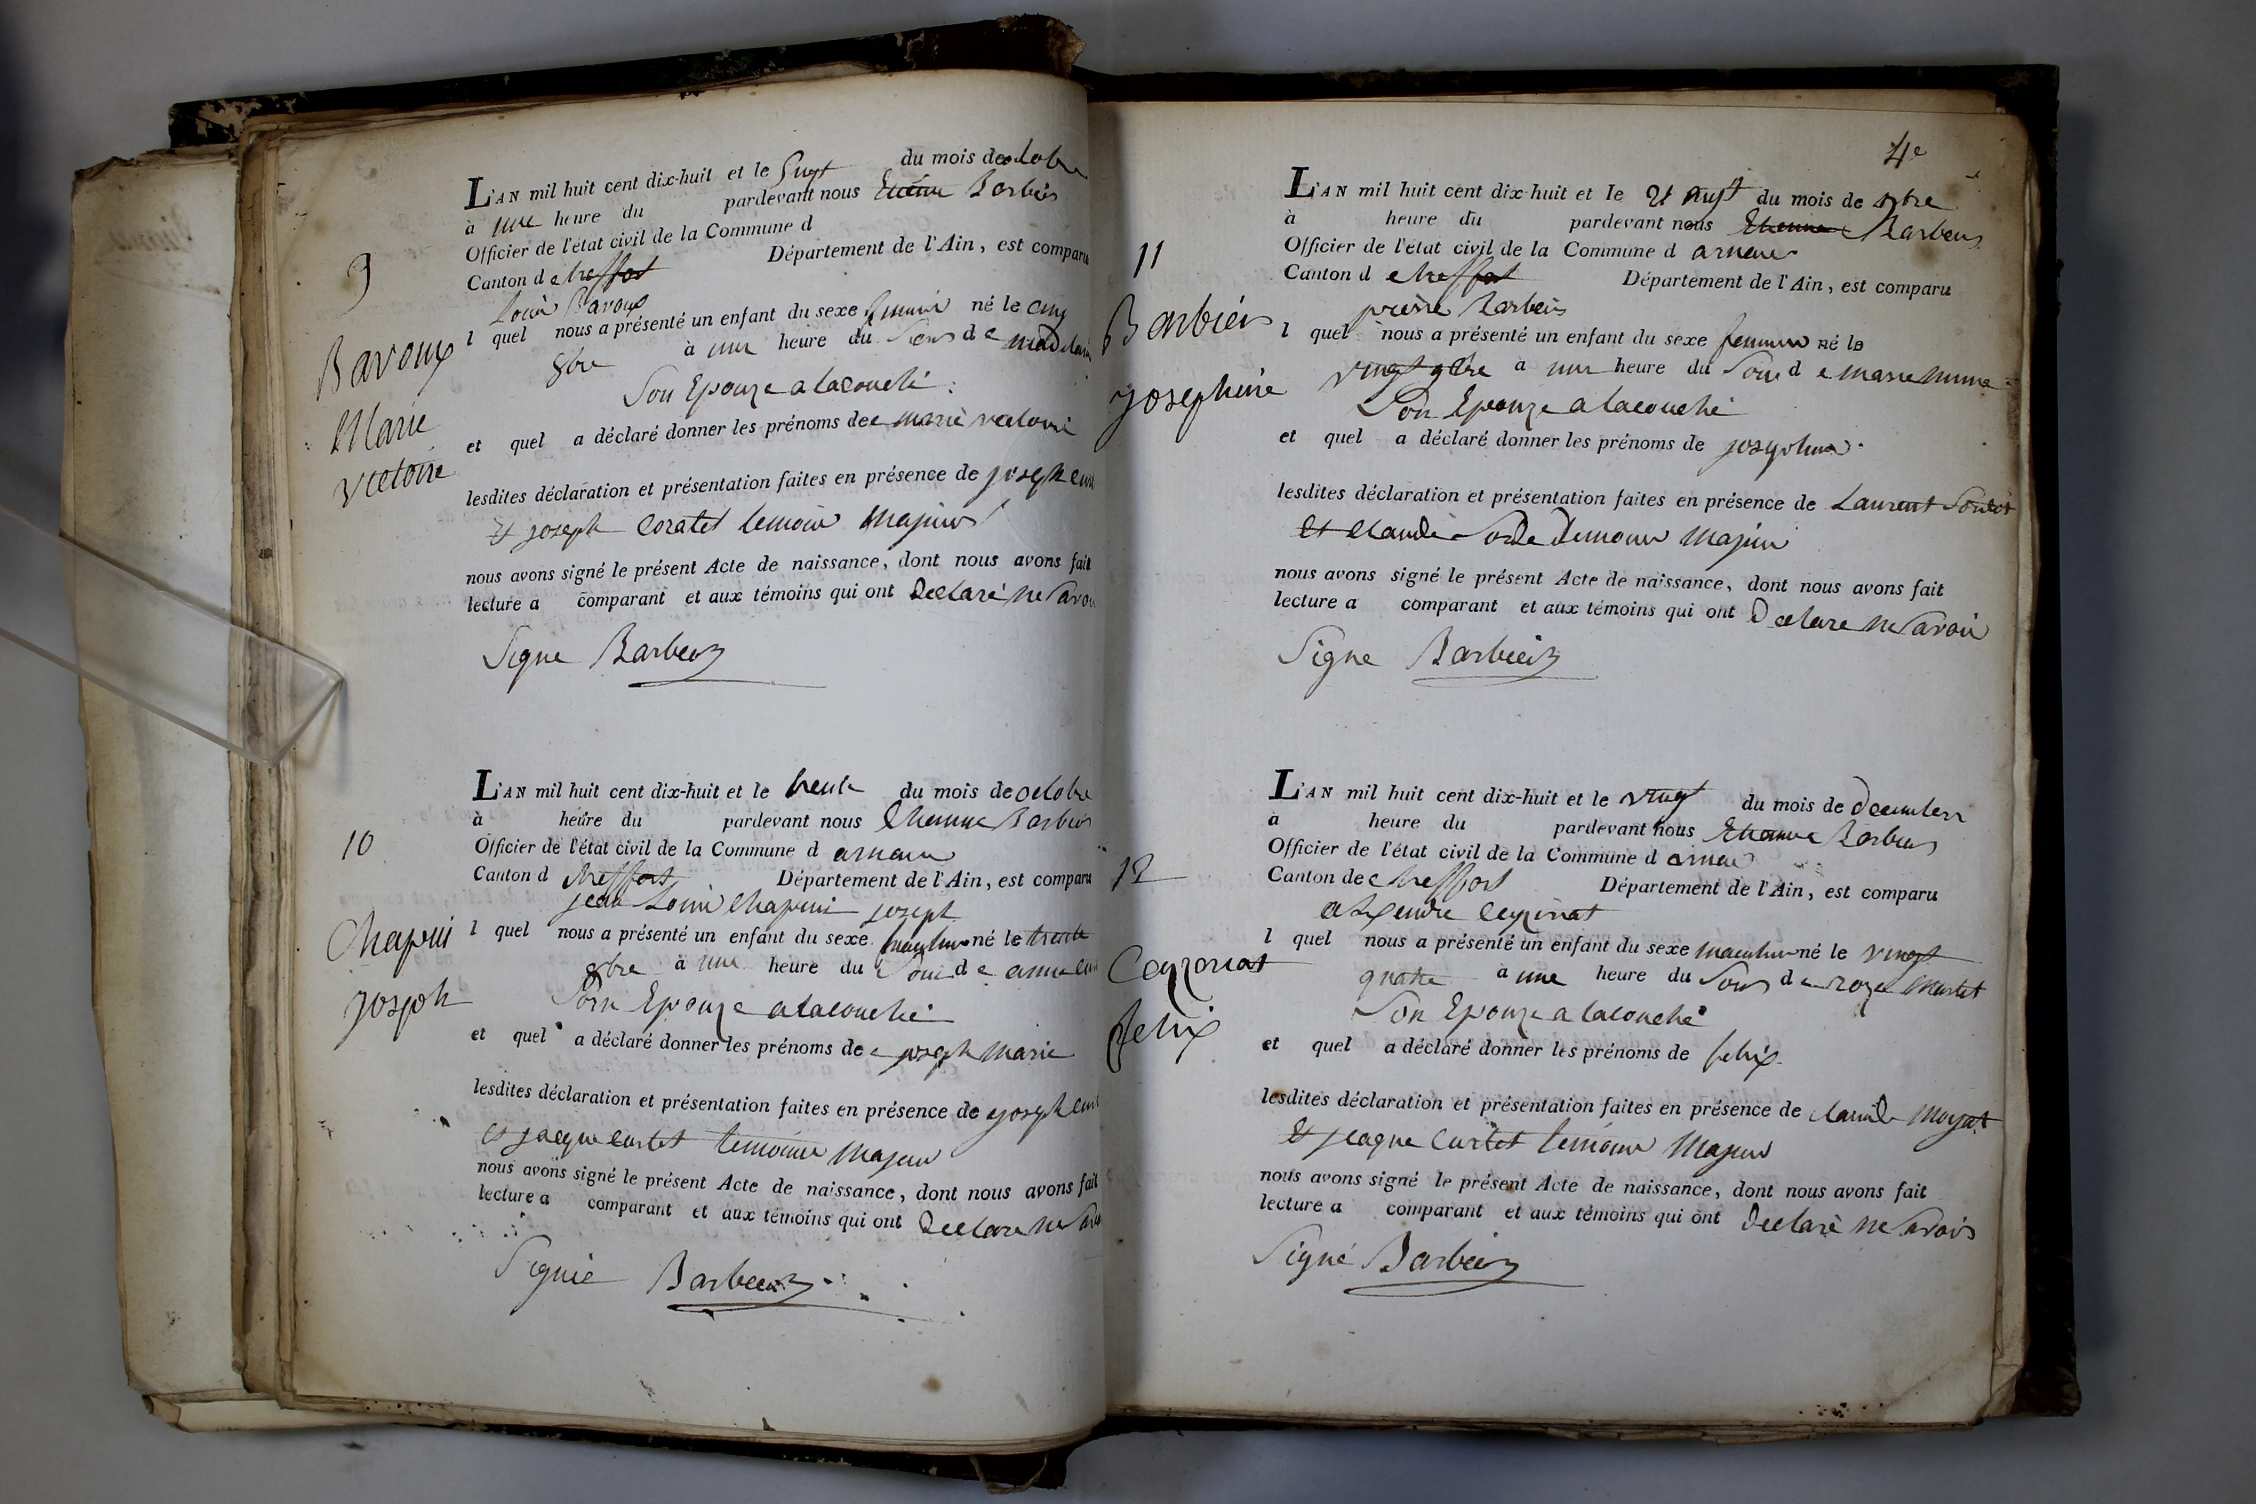 L'AN mil huit cent dix-huit et le Sixt du mois de octobre
à une heure du pardevant nous Etienne Barbier
Officier de l'état civil de la Commune d
Canton d e treffort Département de l'Ain, est comparu
9
Louis Bavoux
l quel nous a présenté un enfant du sexe né le cinq
Bavoux
8bre à une heure du Soir d e
Marie
Son Epouze a lacouché
victoire
et quel a déclaré donner les prénoms de e marie victoire
lesdites déclaration et présentation faites en présence de joseph
et joseph temoin majeurs
nous avons signé le présent Acte de naissance, dont nous avons fait
lecture a comparant et aux témoins qui ont Declaré ne Savoir
Signe Barbier
L'AN mil huit cent dix-huit et le trente du mois de octobre
à heure du pardevant nous Etienne Barbier
10
Officier de l'état civil de la Commune d arnans
Canton d treffort Département de l'Ain, est comparu
jean Louis Chapuis joseph
Chapui
l quel nous a présenté un enfant du sexe né le trente
8bre à une heure du Soir d e anne
joseph
Son Epouze a lacouché
et quel a déclaré donner les prénoms de e joseph marie
lesdites déclaration et présentation faites en présence de joseph
et jacque curtet temoins majeur
nous avons signé le présent Acte de naissance, dont nous avons fait
lecture a comparant et aux témoins qui ont Declare ne
Signie Barbier
4e
L'AN mil huit cent dix-huit et le du mois de
à heure du pardevant nous Etienne Barbier
Officier de l'état civil de la Commune d arnans
11
Canton d e treffort Département de l'Ain, est comparu
Barbier
pierre Barbier
l quel nous a présenté un enfant du sexe feminin né le
josephine
vingt 9bre à une heure du Soir d e marie
Son Epouze a lacouché
et quel a déclaré donner les prénoms de josephine
lesdites déclaration et présentation faites en présence de Laurent
et claude temoin majeur
nous avons signé le présent Acte de naissance, dont nous avons fait
lecture a comparant et aux témoins qui ont Declare ne Savoir
Signe Barbier
L'AN mil huit cent dix-huit et le vingt du mois de Decembre
à heure du pardevant nous Etienne Barbier
Officier de l'état civil de la Commune d arnans
12
Canton de e treffort Département de l'Ain, est comparu
Ceyzeriat
l quel nous a présenté un enfant du sexe né le vingt
Ceyzeriat
quatre à une heure du Soir d e roze
felix
Son Epouze a lacouché
et quel a déclaré donner les prénoms de felix
lesdites déclaration et présentation faites en présence de claude
et jacque curtet temoins majeur
nous avons signé le présent Acte de naissance, dont nous avons fait
lecture a comparant et aux témoins qui ont Declaré ne Savoir
Signé Barbier